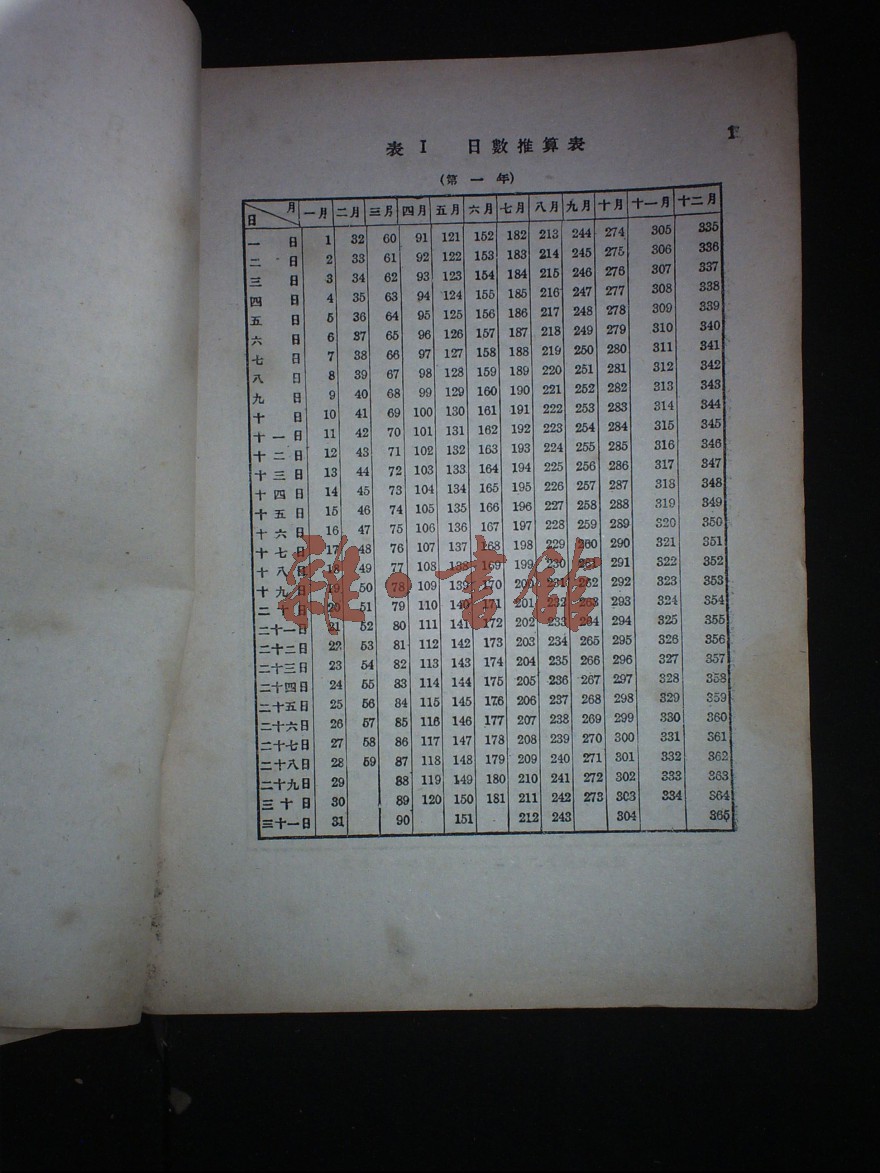 1
表 I 日數推算表
(第一年)
日 月 一月 二月 三月 四月 五月 六月 七月 八月 九月 十月 十一月 十二月
一日 1 32 60 91 121 152 182 213 244 274 305 335
二日 2 33 61 92 122 153 183 214 245 275 306 336
三日 3 34 62 93 123 154 184 215 246 276 307 337
四日 4 35 63 94 124 155 185 216 247 277 308 338
五日 5 36 64 95 125 156 186 217 248 278 309 339
六日 6 37 65 96 126 157 187 218 249 279 310 340
七日 7 38 66 97 127 158 188 219 250 280 311 341
八日 8 39 67 98 128 159 189 220 251 281 312 342
九日 9 40 68 99 129 160 190 221 252 282 313 343
十日 10 41 69 100 130 161 191 222 253 283 314 344
十一日 11 42 70 101 131 162 192 223 254 284 315 345
十二日 12 43 71 102 132 163 193 224 255 285 316 346
十三日 13 44 72 103 133 164 194 225 256 286 317 347
十四日 14 45 73 104 134 165 195 226 257 287 318 348
十五日 15 46 74 105 135 166 196 227 258 288 319 349
十六日 16 47 75 106 136 167 197 228 259 289 320 350
十七日 17 48 76 107 137 168 198 229 260 290 321 351
十八日 18 49 77 108 138 169 199 230 261 291 322 352
十九日 19 50 78 109 139 170 200 231 262 292 323 353
二十日 20 51 79 110 140 171 201 232 263 293 324 354
二十一日 21 52 80 111 141 172 202 233 264 294 325 355
二十二日 22 53 81 112 142 173 203 234 265 295 326 356
二十三日 23 54 82 113 143 174 204 235 266 296 327 357
二十四日 24 55 83 114 144 175 205 236 267 297 328 358
二十五日 25 56 84 115 145 176 206 237 268 298 329 359
二十六日 26 57 85 116 146 177 207 238 269 299 330 360
二十七日 27 58 86 117 147 178 208 239 270 300 331 361
二十八日 28 59 87 118 148 179 209 240 271 301 332 362
二十九日 29 88 119 149 180 210 241 272 302 333 363
三十日 30 89 120 150 181 211 242 273 303 334 364
三十一日 31 90 151 212 243 304 365
雜·書館